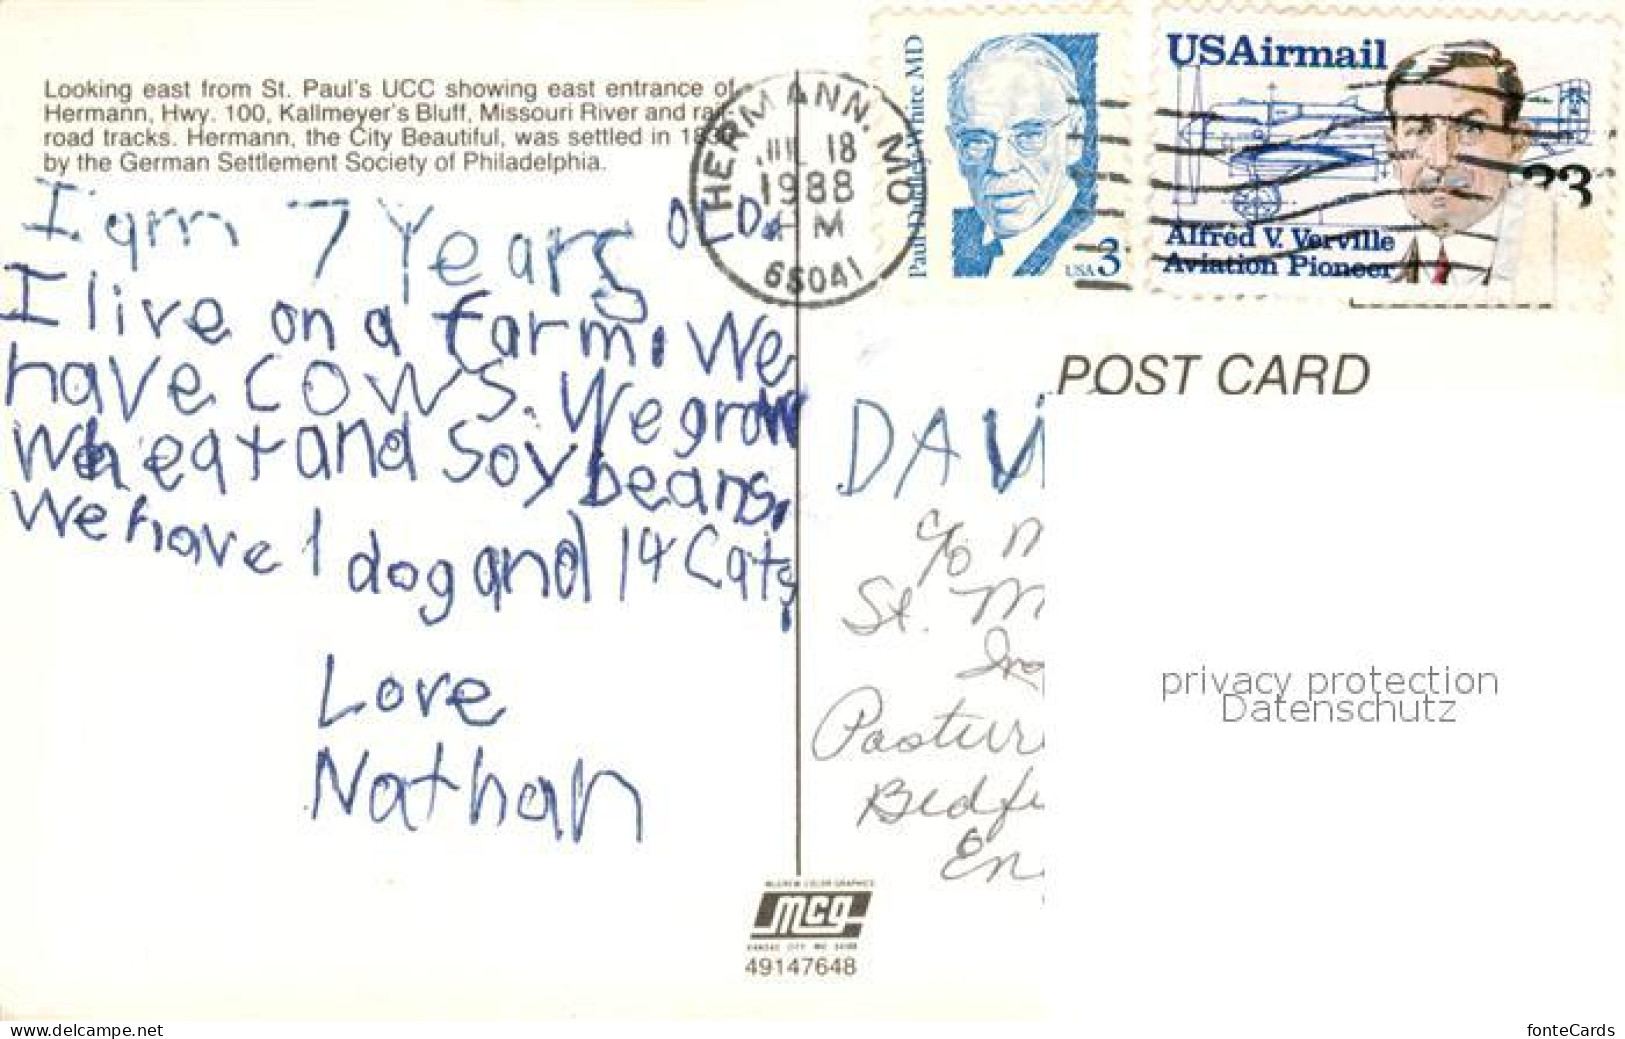 Looking east from St. Paul's UCC showing east entrance of
Hermann, Hwy. 100, Kallmeyer's Bluff, Missouri River and rail-
road tracks. Hermann, the City Beautiful, was settled in
by the German Settlement Society of Philadelphia.
I am 7 Years OLD.
I live on a farm. We
have cows. We grow
wheat and Soybeans.
We have 1 dog and 14 Cats,
Love
Nathan
HERMANN. MO
JUL 18
1988
PM
65041
Paul Dudley White MD
USA 3
USAirmail
33
Alfred V. Verville
Aviation Pioneer
POST CARD
DAV
c/o M
St. M
Pastur
Bedf
En
privacy protection
Datenschutz
McGREW COLOR GRAPHICS
mcg
KANSAS CITY MO
49147648
www.delcampe.net
fonteCards